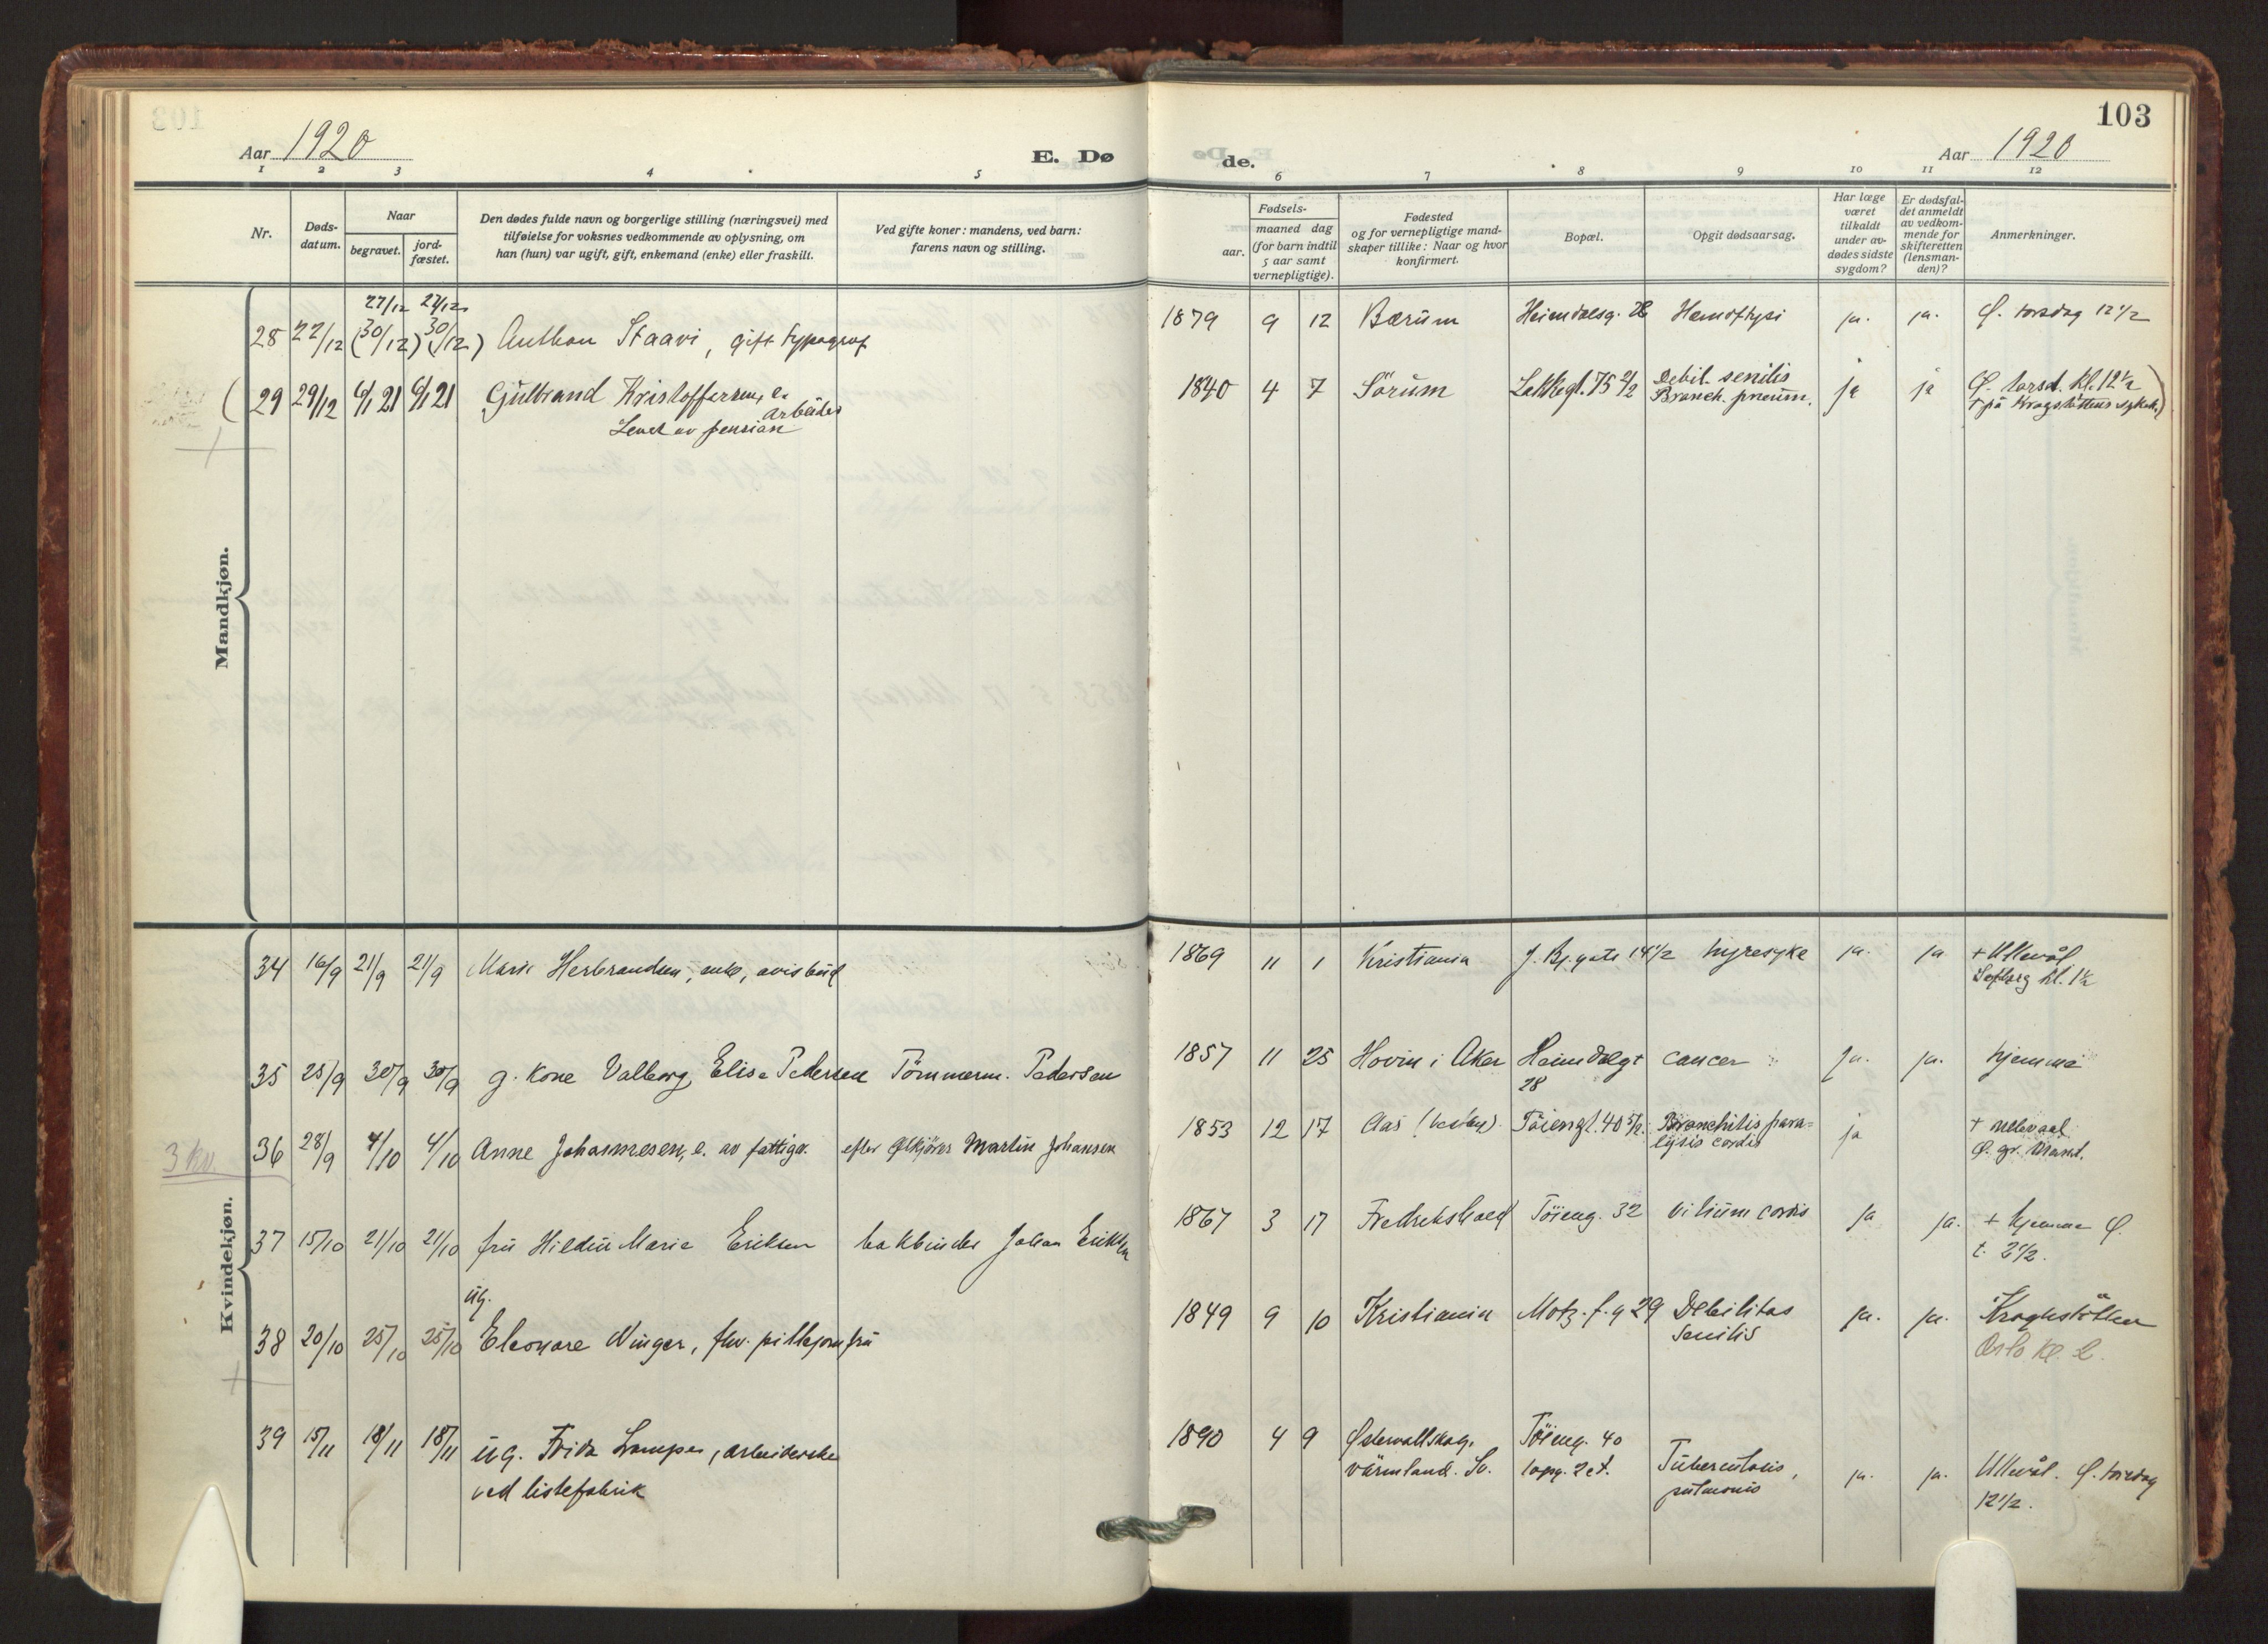 103
Aar 1920
E. Dø
de.
Aar 1920
1 2 3 4 5 6 7 8 9 10 11 12
Nr.
Døds-
datum.
Naar
begravet.
jord-
fæstet.
Den dødes fulde navn og borgerlige stilling (næringsvei) med
tilføielse for voksnes vedkommende av oplysning, om
han (hun) var ugift, gift, enkemand (enke) eller fraskilt.
Ved gifte koner: mandens, ved barn:
farens navn og stilling.
Fødsels-
aar.
maaned dag
(for barn indtil
5 aar samt
vernepligtige).
Fødested
og for vernepligtige mand-
skaper tillike: Naar og hvor
konfirmert.
Bopæl.
Opgit dødsaarsag.
Har læge
været
tilkaldt
under av-
dødes sidste
sygdom?
Er dødsfal-
det anmeldt
av vedkom-
mende for
skifteretten
(lensman-
den)?
Anmerkninger.
Mandkjøn.
27/12 27/12
28 22/12 (30/12) (30/12) Anthon Staavi, gift typograf 1879 9 12 Bærum Heimdalsg. 28 Hemoftysi ja. ja. Ø. torsdag 12 1/2
(29 29/12 6/1 21 6/1 21 Gulbrand Kristoffersen, e. 1840 4 7 Sörum Lakkegt. 75 2/2 Debil. senilis ja ja Ø. torsd. kl. 12 1/2
arbeider Bronch. pneum. + på Krogstöttens sykeh.)
Levet av pension
Kvindekjøn.
34 16/9 21/9 21/9 Marie Herbrandsen, enke, avisbud 1869 11 1 Kristiania J. Bj. gate 14 1/2 nyresyke ja. ja + Ullevål
Sofberg kl. 1 1/2
35 25/9 30/9 30/9 g. kone Valborg Elise Pedersen Tömmerm. Pedersen 1857 11 25 Hovin i Aker Heimdalgt cancer ja. ja. hjemme
28
3 kv.
36 28/9 4/10 4/10 Anne Johannesen, e. av fattigv. efter Ølkjörer Martin Johansen 1853 12 17 Aas (Vestby). Töiengt. 40 5/2. Bronchitis para- ja + Ullevaal
lysis cordis Ø. gr. Mand.
37 15/10 21/10 21/10 fru Hildur Marie Eriksen bokbinder Johan Eriksen 1867 3 17 Fredrikshald Töieng. 32 vitium cordis ja ja. + hjemme Ø.
t. 2 1/2.
ug.
38 20/10 25/10 25/10 Eleonore Winger, fhv. pillejomfru 1849 9 10 Kristiania Motz. f. g 29 Debilitas ja. ja. Kroghstötten
Senilis Oslo Kl. 2.
39 15/11 18/11 18/11 ug. Frida Lamper, arbeiderske 1890 4 9 Östervallskog, Töieng. 40
ved listefabrik Värmland. Sv. 1 opg. 2 et. Tuberculosis, ja. ja. Ullevål. Ø. torsdag
pulmonis 12 1/2.